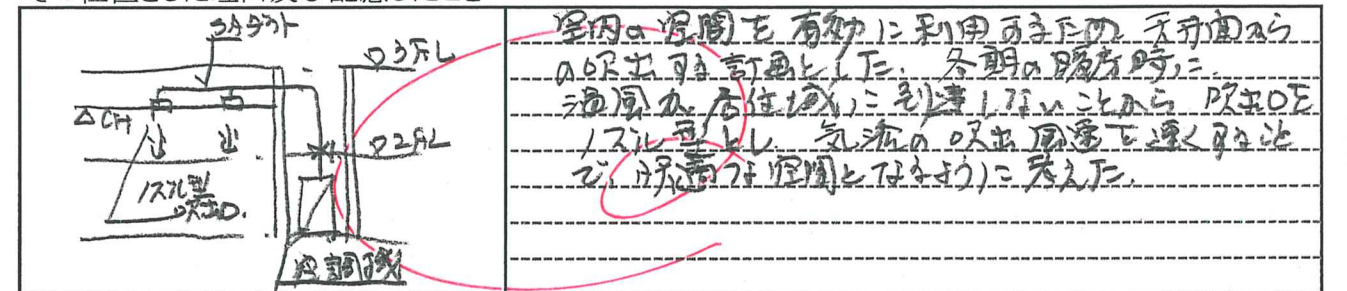 その位置とした理由及び配慮したこと
SAダクト
▽3FL
△CH
▽2FL
ノズル型
吹出口
空調機
室内の空間を有効に利用するため、天井面から
の吹出する計画とした。冬期の暖房時に
温風が居住域に到達しないことから 吹出口を
ノズル型とし、気流の吹出風速を速くすること
で、快適な空間となるように考えた。